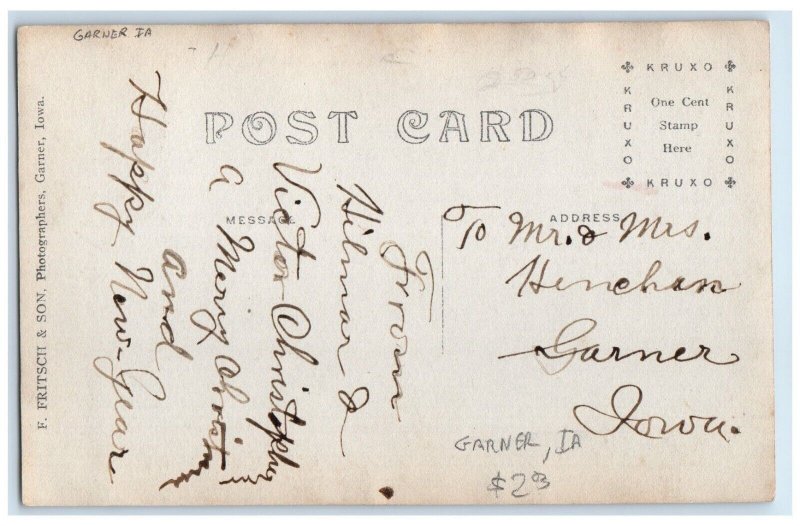 GARNER IA
POST CARD
KRUXO
KRUXO
One Cent
Stamp
Here
KRUXO
KRUXO
MESSAGE
From
Hilmar &
Victor Christophey
a Merry Christ
and
Happy New-Year
ADDRESS
To Mr. & Mrs.
Henchan
Garner
Iowa.
GARNER, IA
$2
F. FRITSCH & SON, Photographers, Garner, Iowa.